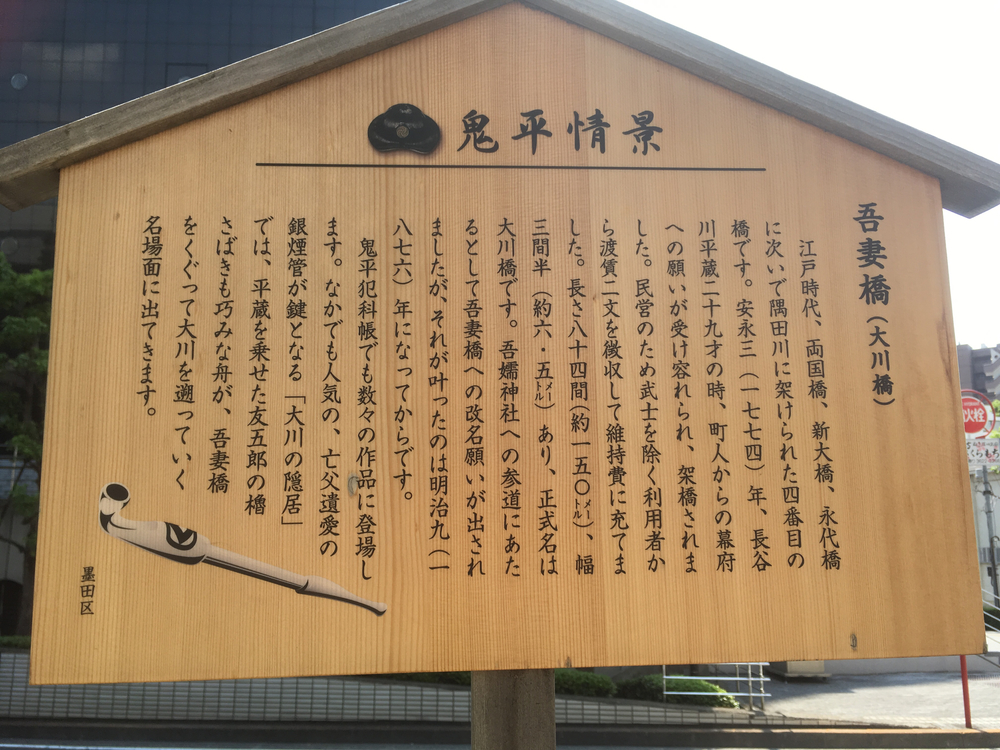 鬼平情景
吾妻橋(大川橋)
江戸時代、両国橋、新大橋、永代橋
に次いで隅田川に架けられた四番目の
橋です。安永三(一七七四)年、長谷
川平蔵二十九才の時、町人からの幕府
への願いが受け容れられ、架橋されま
した。民営のため武士を除く利用者か
ら渡賃二文を徴収して維持費に充てま
した。長さ八十四間(約一五〇メートル)、幅
三間半(約六・五メートル)あり、正式名は
大川橋です。吾嬬神社への参道にあた
るとして吾妻橋への改名願いが出され
ましたが、それが叶ったのは明治九(一
八七六)年になってからです。
鬼平犯科帳でも数々の作品に登場し
ます。なかでも人気の、亡父遺愛の
銀煙管が鍵となる「大川の隠居」
では、平蔵を乗せた友五郎の櫓
さばきも巧みな舟が、吾妻橋
をくぐって大川を遡っていく
名場面に出てきます。
墨田区
火栓